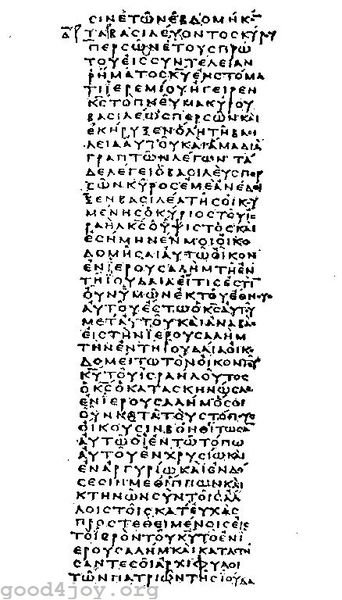 ΣΙΝΕΤΩΝΕΒΔΟΜΗΚΟ
ΤΑΒΑΣΙΛΕΥΟΝΤΟΣΚΥΡΟΥ
ΠΕΡΣΩΝΕΤΟΥΣΠΡΩ
ΤΟΥΕΙΣΣΥΝΤΕΛΕΙΑΝ
ΡΗΜΑΤΟΣΚΥΕΝΣΤΟΜΑ
ΤΙΙΕΡΕΜΙΟΥΗΓΕΙΡΕΝ
ΚΣΤΟΠΝΕΥΜΑΚΥΡΟΥ
ΒΑΣΙΛΕΩΣΠΕΡΣΩΝΚΑΙ
ΕΚΗΡΥΞΕΝΟΛΗΤΗΒΑΣΙ
ΛΕΙΑΑΥΤΟΥΚΑΙΑΜΑΔΙΑ
ΓΡΑΠΤΩΝΛΕΓΩΝΤΑ
ΔΕΛΕΓΕΙΟΒΑΣΙΛΕΥΣΠΕΡ
ΣΩΝΚΥΡΟΣΕΜΕΑΝΕΔΕΙ
ΞΕΝΒΑΣΙΛΕΑΤΗΣΟΙΚΟΥ
ΜΕΝΗΣΟΚΥΡΙΟΣΤΟΥΙΣ
ΡΑΗΛΚΣΟΥΨΙΣΤΟΣΚΑΙ
ΕΣΗΜΗΝΕΝΜΟΙΟΙΚΟ
ΔΟΜΗΣΑΙΑΥΤΩΟΙΚΟΝ
ΕΝΙΕΡΟΥΣΑΛΗΜΤΗΕΝ
ΤΗΙΟΥΔΑΙΑΕΙΤΙΣΕΣΤΙ
ΟΥΝΥΜΩΝΕΚΤΟΥΕΘΝΟΥΣ
ΑΥΤΟΥΕΣΤΩΟΚΣΑΥΤΟΥ
ΜΕΤΑΥΤΟΥΚΑΙΑΝΑΒΑΣ
ΕΙΣΤΗΝΙΕΡΟΥΣΑΛΗΜ
ΤΗΝΕΝΤΗΙΟΥΔΑΙΑΟΙΚΟ
ΔΟΜΕΙΤΩΤΟΝΟΙΚΟΝΤΟΥ
ΚΥΤΟΥΙΣΡΑΗΛΟΥΤΟΣ
ΟΚΣΟΚΑΤΑΣΚΗΝΩΣΑΣ
ΕΝΙΕΡΟΥΣΑΛΗΜΟΣΟΙ
ΟΥΝΚΑΤΑΤΟΥΣΤΟΠΟΥΣ
ΟΙΚΟΥΣΙΝΒΟΗΘΙΤΩΣΑΝ
ΑΥΤΩΟΙΕΝΤΩΤΟΠΩ
ΑΥΤΟΥΕΝΧΡΥΣΙΩΚΑΙ
ΕΝΑΡΓΥΡΙΩΚΑΙΕΝΔΟ
ΣΕΣΙΝΜΕΘΙΠΠΩΝΚΑΙ
ΚΤΗΝΩΝΣΥΝΤΟΙΣΑΛ
ΛΟΙΣΤΟΙΣΚΑΤΕΥΧΑΣ
ΠΡΟΣΤΕΘΕΙΜΕΝΟΙΣΕΙΣ
ΤΟΙΕΡΟΝΤΟΥΚΥΤΟΕΝΙ
ΕΡΟΥΣΑΛΗΜΚΑΙΚΑΤΑΣΤΗ
ΣΑΝΤΕΣΟΙΑΡΧΙΦΥΛΟΙ
ΤΩΝΠΑΤΡΙΩΝΤΗΣΙΟΥΔΑ
good4joy.org